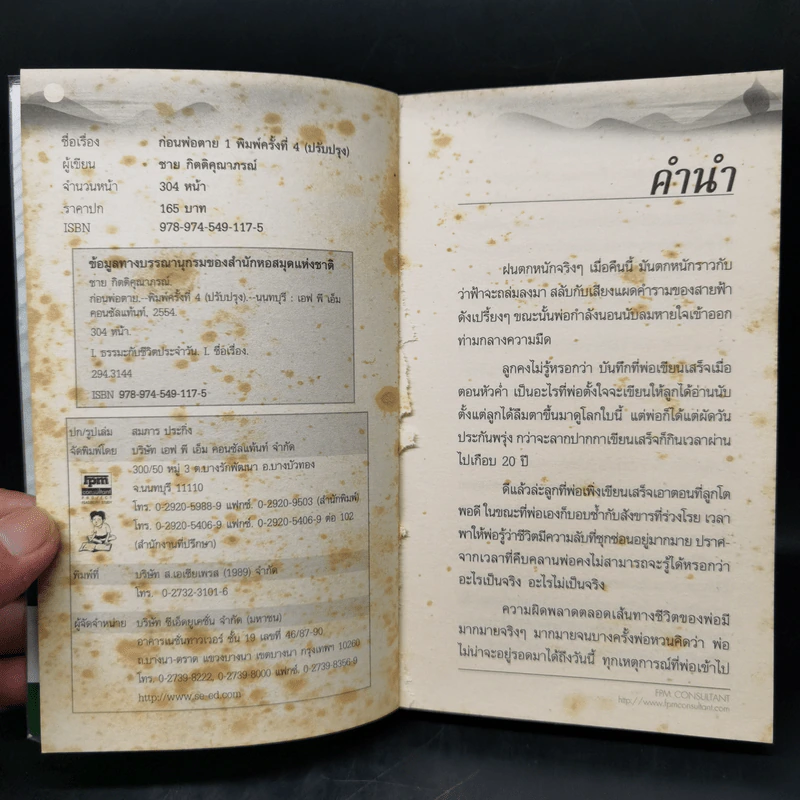 ชื่อเรื่อง ก่อนพ่อตาย 1 พิมพ์ครั้งที่ 4 (ปรับปรุง)
ผู้เขียน ชาย กิตติคุณาภรณ์
จำนวนหน้า 304 หน้า
ราคาปก 165 บาท
ISBN 978-974-549-117-5
ข้อมูลทางบรรณานุกรมของสำนักหอสมุดแห่งชาติ
ชาย กิตติคุณาภรณ์
ก่อนพ่อตาย.--พิมพ์ครั้งที่ 4 (ปรับปรุง).--นนทบุรี : เอฟ พี เอ็ม
คอนซัลแท้นท์, 2554.
304 หน้า.
I. ธรรมะกับชีวิตประจำวัน. I. ชื่อเรื่อง.
294.3144
ISBN 978-974-549-117-5
ปก/รูปเล่ม สมภาร ประกิ่ง
จัดพิมพ์โดย บริษัท เอฟ พี เอ็ม คอนซัลแท้นท์ จำกัด
300/50 หมู่ 3 ต.บางรักพัฒนา อ.บางบัวทอง
จ.นนทบุรี 11110
fpm
โทร. 0-2920-5988-9 แฟกซ์. 0-2920-9503 (สำนักพิมพ์)
โทร. 0-2920-5406-9 แฟกซ์. 0-2920-5406-9 ต่อ 102
(สำนักงานที่ปรึกษา)
พิมพ์ที่ บริษัท ส.เอเชียเพรส (1989) จำกัด
โทร. 0-2732-3101-6
ผู้จัดจำหน่าย บริษัท ซีเอ็ดยูเคชั่น จำกัด (มหาชน)
อาคารเนชั่นทาวเวอร์ ชั้น 19 เลขที่ 46/87-90
ถ.บางนา-ตราด แขวงบางนา เขตบางนา กรุงเทพฯ 10260
โทร. 0-2739-8222, 0-2739-8000 แฟกซ์. 0-2739-8356-9
http://www.se-ed.com
คำนำ
ฝนตกหนักจริงๆ เมื่อคืนนี้ มันตกหนักราวกับ
ว่าฟ้าจะถล่มลงมา สลับกับเสียงแผดคำรามของสายฟ้า
ดังเปรี้ยงๆ ขณะนั้นพ่อกำลังนอนนับลมหายใจเข้าออก
ท่ามกลางความมืด
ลูกคงไม่รู้หรอกว่า บันทึกที่พ่อเขียนเสร็จเมื่อ
ตอนหัวค่ำ เป็นอะไรที่พ่อตั้งใจจะเขียนให้ลูกได้อ่านนับ
ตั้งแต่ลูกได้ลืมตาขึ้นมาดูโลกใบนี้ แต่พ่อก็ได้แต่ผัดวัน
ประกันพรุ่ง กว่าจะลากปากกาเขียนเสร็จก็กินเวลาผ่าน
ไปเกือบ 20 ปี
ดีแล้วล่ะลูกที่พ่อเพิ่งเขียนเสร็จเอาตอนที่ลูกโต
พอดี ในขณะที่พ่อเองก็บอบช้ำกับสังขารที่ร่วงโรย เวลา
พาให้พ่อรู้ว่าชีวิตมีความลับที่ซุกซ่อนอยู่มากมาย ปราศ-
จากเวลาที่คืบคลานพ่อคงไม่สามารถจะรู้ได้หรอกว่า
อะไรเป็นจริง อะไรไม่เป็นจริง
ความผิดพลาดตลอดเส้นทางชีวิตของพ่อมี
มากมายจริงๆ มากมายจนบางครั้งพ่อหวนคิดว่า พ่อ
ไม่น่าจะอยู่รอดมาได้ถึงวันนี้ ทุกเหตุการณ์ที่พ่อเข้าไป
FPM CONSULTANT
http://www.fpmconsultant.com